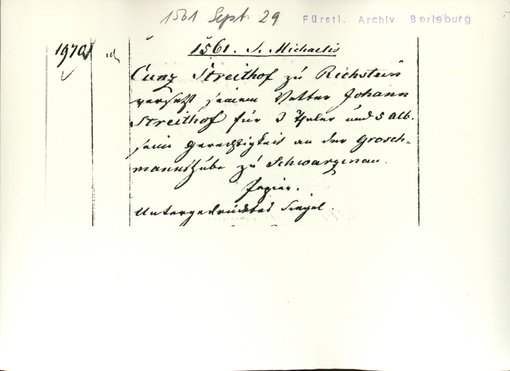 1561 Sept. 29 Fürstl. Archiv Berleburg
1970
1561. S. Michaelis
Cunz Streithof zu Richstein
versetzt seinem Vetter Johann
Streithof für 3 Thaler und 5 Alb.
seine Gerechtigkeit an der Grosch-
mannshube zu Schwarzenau.
Papier.
Untergedrücktes Siegel.